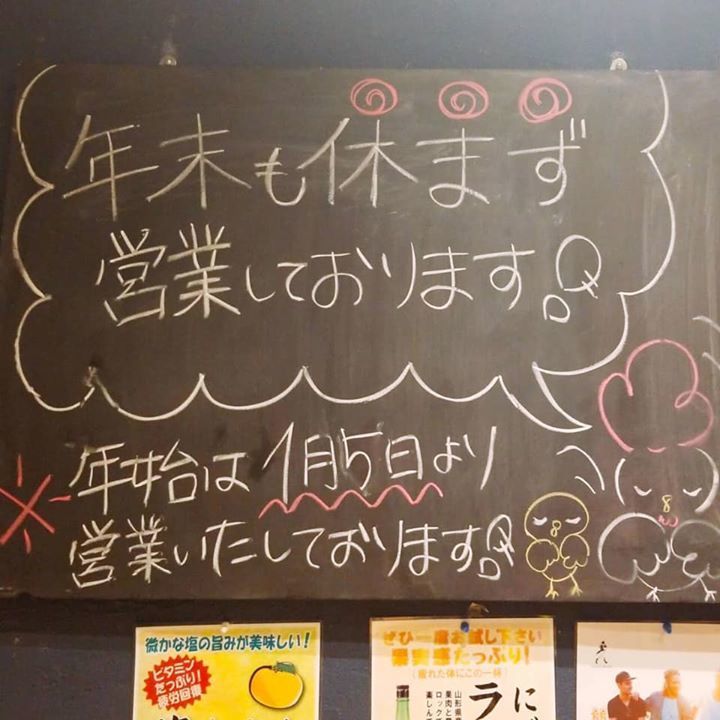 年末も休まず
営業しております!
※年始は1月5日より
営業いたしております!
微かな塩の旨みが美味しい!
ビタミン
たっぷり!
疲労回復
ぜひ一度お試し下さい
果実感たっぷり!
(疲れた体にこの一杯)